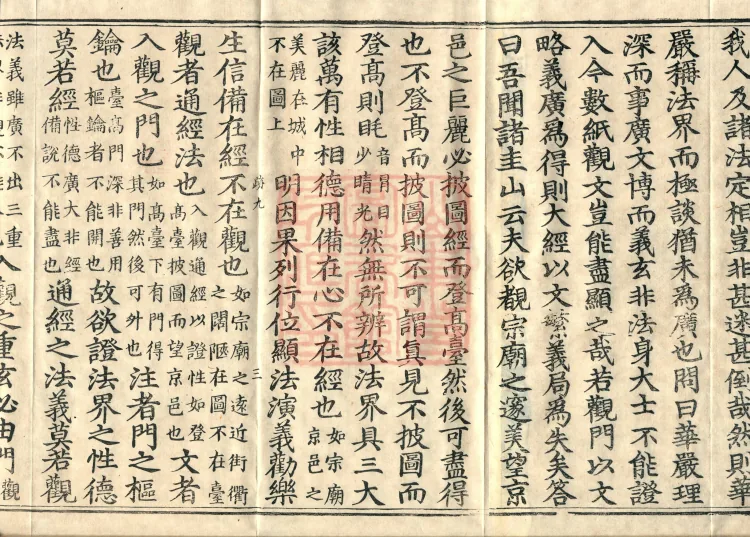 我人及諸法定相豈非甚迷甚倒哉然則華
嚴稱法界而極談猶未為廣也問曰華嚴理
深而事廣文博而義玄非法身大士不能證
入今數紙觀文豈能盡顯之哉若觀門以文
略義廣為得則大經以文繁義局為失矣答
曰吾聞諸圭山云夫欲覩宗廟之邃美望京
邑之巨麗必披圖經而登髙臺然後可盡得
也不登髙而披圖則不可謂真見不披圖而
登髙則眊音冒目少睛光然無所辨故法界具三大
該萬有性相德用備在心不在經也如宗廟京邑之
美麗在城中不在圖上明因果列行位顯法演義勸樂
路九 三
生信備在經不在觀也如宗廟之遠近街衢之闊陿在圖不在臺
觀者通經法也入觀通經以證性如登髙臺披圖而望京邑也文者
入觀之門也如髙臺下有門得其門然後可外也注者門之樞
鑰也臺髙門深非善用樞鑰者不能開也故欲證法界之性德
莫若經性德廣大非經備說不能盡也通經之法義莫若觀
法義雖廣不出三重入觀之重玄必由門觀